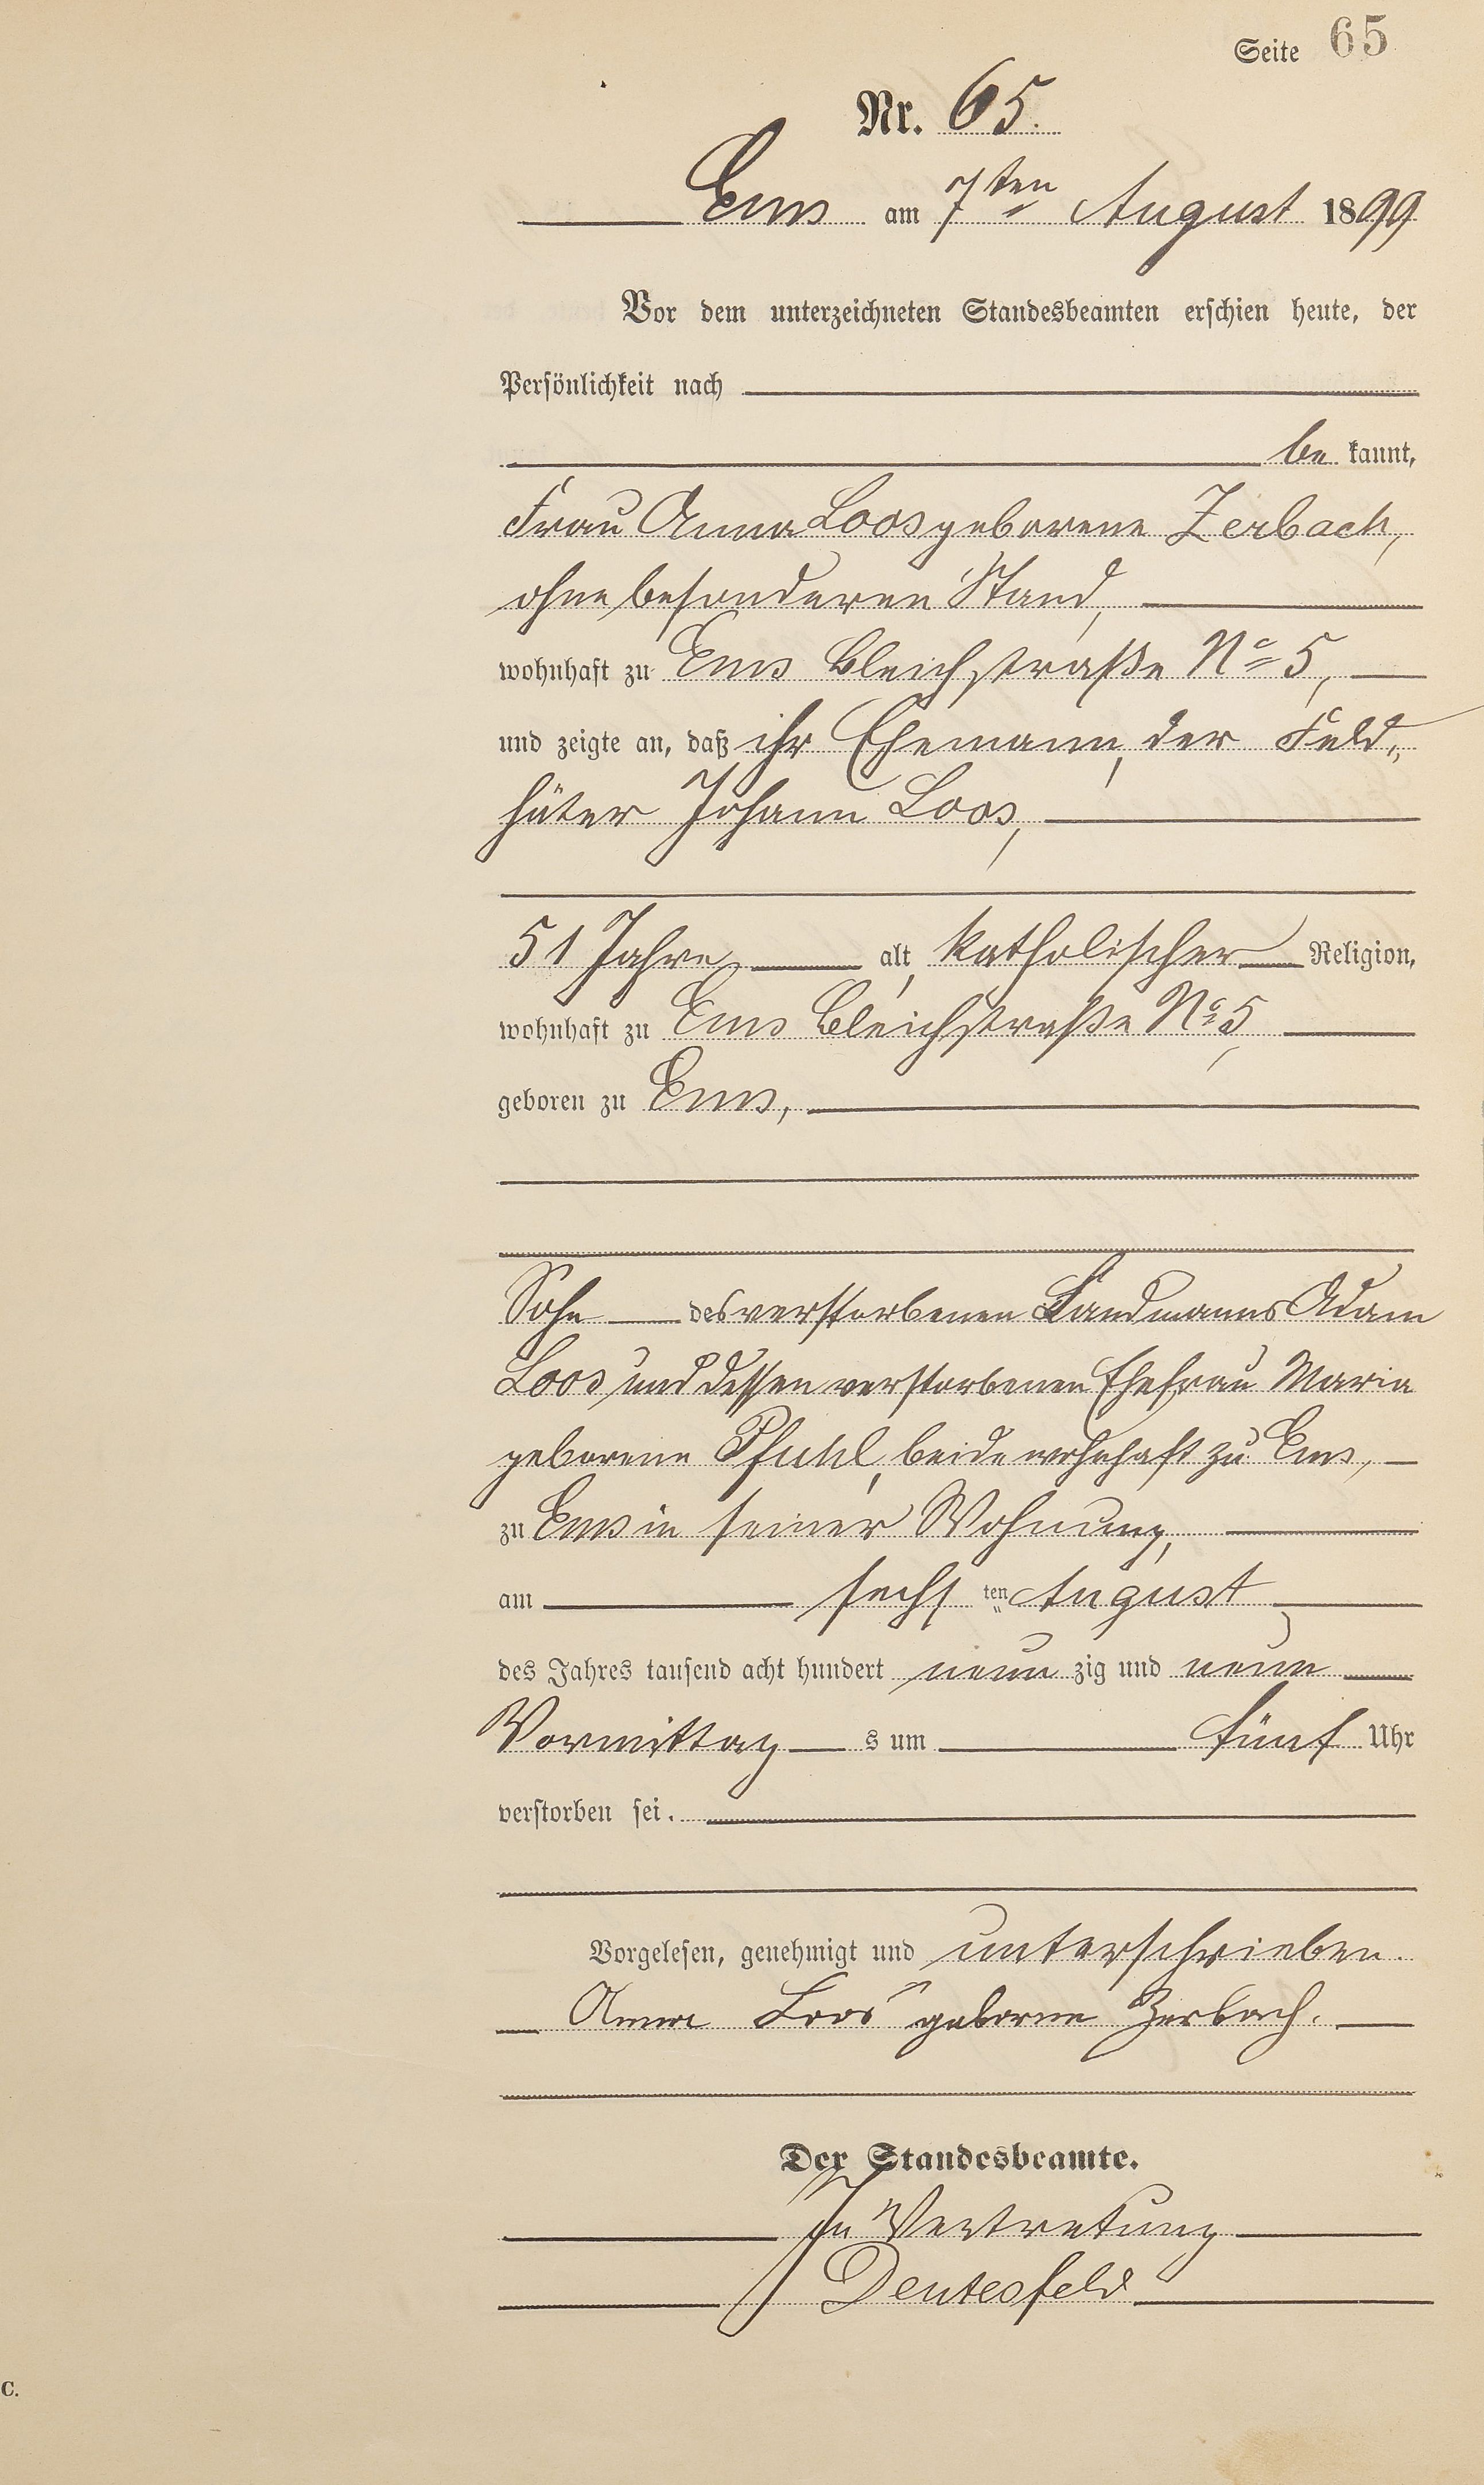 Seite 65
Nr. 65.
Ems am 7ten August 1899
Vor dem unterzeichneten Standesbeamten erschien heute, der
Persönlichkeit nach
be kannt,
Frau Anna Loos geborene Zerbach,
ohne besonderen Stand,
wohnhaft zu Ems Bleichstraße No 5,
und zeigte an, daß ihr Ehemann, der Feld-
hüter Johann Loos,
51 Jahre alt, katholischer Religion,
wohnhaft zu Ems Bleichstraße No 5,
geboren zu Ems,
Sohn des verstorbenen Landmanns Adam
Loos und dessen verstorbenen Ehefrau Maria
geborene Pfuhl, beide wohnhaft zu Ems,
zu Ems in seiner Wohnung,
am sechs ten August
des Jahres tausend acht hundert neun zig und neun
Vormittag s um fünf Uhr
verstorben sei.
Vorgelesen, genehmigt und unterschrieben.
Anna Loos geborne Zerbach.
Der Standesbeamte.
In Vertretung
Deutesfeld
C.